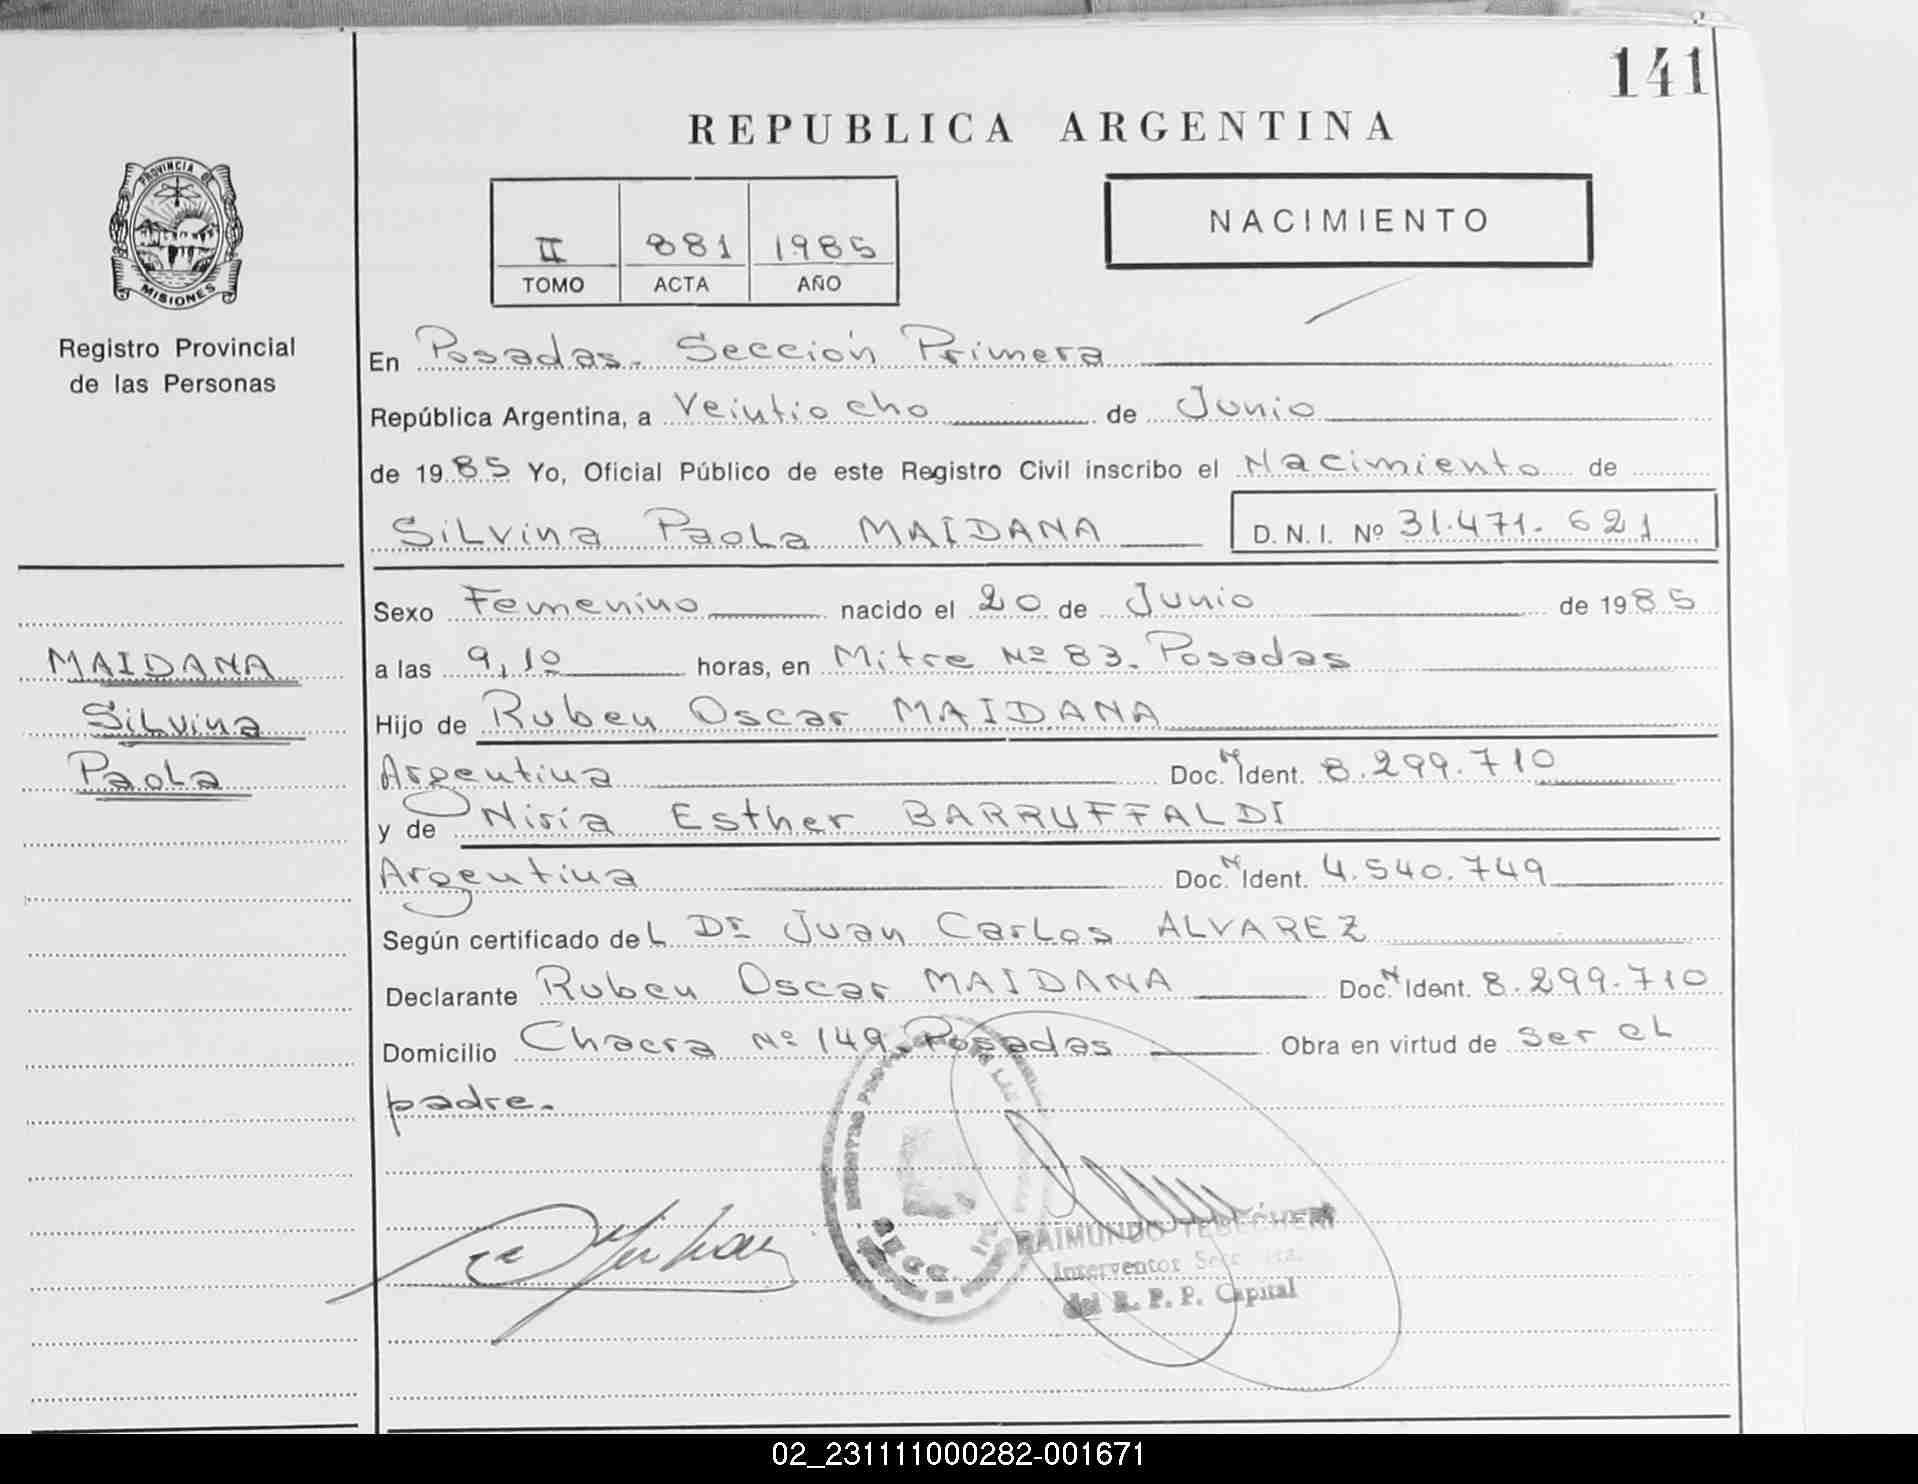 141
REPUBLICA ARGENTINA
PROVINCIA DE
MISIONES
Registro Provincial
de las Personas
II 881 1985
TOMO ACTA AÑO
NACIMIENTO
En Posadas. Sección Primera
República Argentina, a Veintiocho de Junio
de 1985 Yo, Oficial Público de este Registro Civil inscribo el Nacimiento de
Silvina Paola MAIDANA D. N. I. Nº 31.471.621
Sexo Femenino nacido el 20 de Junio de 1985
MAIDANA
Silvina
Paola
a las 9,10 horas, en Mitre Nº 83. Posadas
Hijo de Ruben Oscar MAIDANA
Argentina Doc. N Ident. 8.299.710
y de Esther BARRUFFALDI
Argentina Doc. N Ident. 4.540.749
Según certificado del Dr Juan Carlos ALVAREZ
Declarante Ruben Oscar MAIDANA Doc. N Ident. 8.299.710
Domicilio Chacra Nº 149. Posadas Obra en virtud de ser el
padre.
RAIMUNDO
Interventor
del R. P. P. Capital
02_231111000282-001671